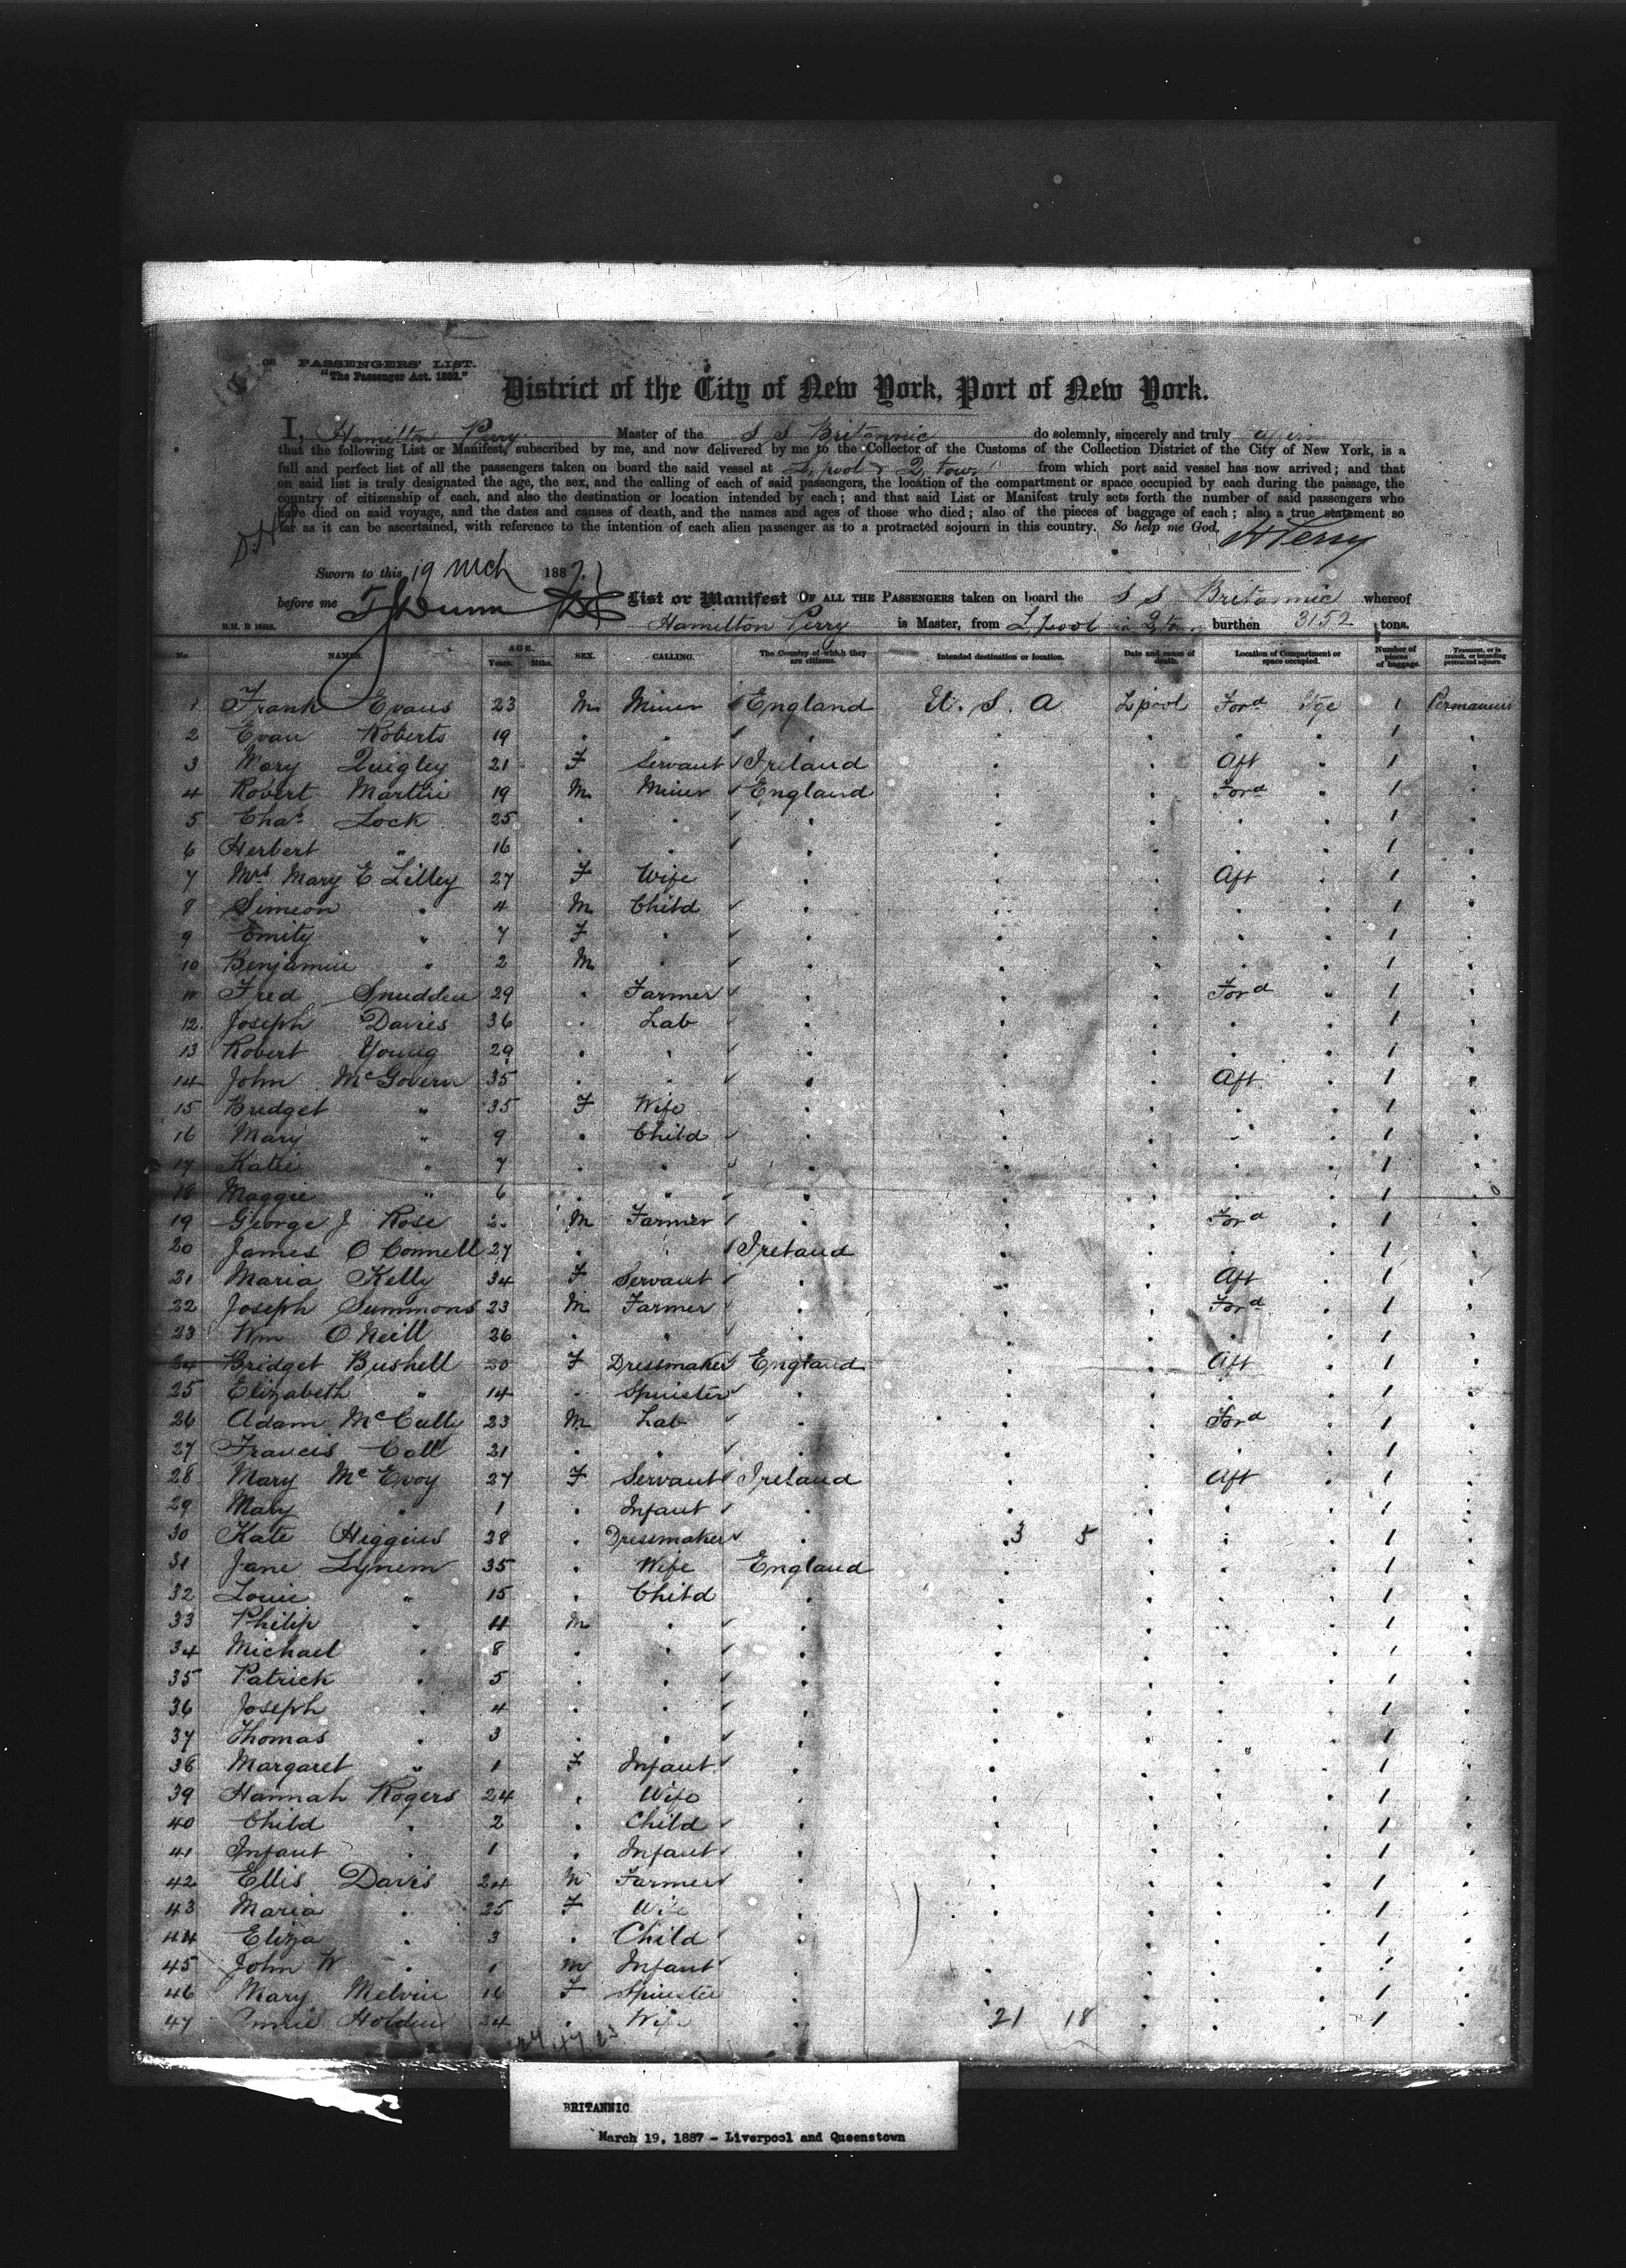 PASSENGERS' LIST.
"The Passenger Act. 1882."
District of the City of New York, Port of New York.
I, Hamilton Perry Master of the S S Britannic do solemnly, sincerely and truly affirm
that the following List or Manifest, subscribed by me, and now delivered by me to the Collector of the Customs of the Collection District of the City of New York, is a
full and perfect list of all the passengers taken on board the said vessel at L.pool & Q. town from which port said vessel has now arrived; and that
on said list is truly designated the age, the sex, and the calling of each of said passengers, the location of the compartment or space occupied by each during the passage, the
country of citizenship of each, and also the destination or location intended by each; and that said List or Manifest truly sets forth the number of said passengers who
have died on said voyage, and the dates and causes of death, and the names and ages of those who died; also of the pieces of baggage of each; also a true statement so
far as it can be ascertained, with reference to the intention of each alien passenger as to a protracted sojourn in this country. So help me God,
H Perry
Sworn to this 19 Mch 1887.
before me T J Dunn List or Manifest OF ALL THE PASSENGERS taken on board the S S Britannic whereof
Hamilton Perry is Master, from L.pool Q. town burthen 3152 tons.
No. NAMES. AGE. Years. Mths. SEX. CALLING. The Country of which they are citizens. Intended destination or location. Date and cause of death. Location of Compartment or space occupied. Number of pieces of baggage. Transient, or in transit, or intending protracted sojourn.
1 Frank Evans 23 M Miner England U. S. A L pool Ford Stge 1 Permanent
2 Evan Roberts 19 " " " " " " " 1 "
3 Mary Quigley 21 F Servant Ireland " " Aft " 1 "
4 Robert Martin 19 M Miner England " " Ford " 1 "
5 Chas Lock 25 " " " " " " " 1 "
6 Herbert " 16 " " " " " " " 1 "
7 Mrs Mary E Lilley 27 F Wife " " " Aft " 1 "
8 Simeon " 4 M Child " " " " " 1 "
9 Emily " 7 F " " " " " " 1 "
10 Benjamin " 2 M " " " " " " 1 "
11 Fred Snudden 29 " Farmer " " " Ford " 1 "
12 Joseph Davies 36 " Lab " " " " " 1 "
13 Robert Young 29 " " " " " " " 1 "
14 John McGovern 35 " " " " " Aft " 1 "
15 Bridget " 35 F Wife " " " " " 1 "
16 Mary " 9 " Child " " " " " 1 "
17 Katie " 7 " " " " " " " 1 "
18 Maggie " 6 " " " " " " " 1 "
19 George J Rose M Farmer " " " Ford " 1 "
20 James O Connell 27 " " Ireland " " " " 1 "
21 Maria Kelly 34 F Servant " " " Aft " 1 "
22 Joseph Summons 23 M Farmer " " " Ford " 1 "
23 Wm O Neill 26 " " " " " " " 1 "
24 Bridget Bushell 30 F Dressmaker England " " Aft " 1 "
25 Elizabeth " 14 " Spinster " " " " " 1 "
26 Adam McCully 23 M Lab " " " Ford " 1 "
27 Francis Call 21 " " " " " " " 1 "
28 Mary McEvoy 27 F Servant Ireland " " Aft " 1 "
29 Mary " 1 " Infant " " " " " 1 "
30 Kate Higgins 28 " Dressmaker " 3 5 " " " 1 "
31 Jane Lynem 35 " Wife England " " " " 1 "
32 Louie " 15 " Child " " " " " 1 "
33 Philip " 11 M " " " " " " 1 "
34 Michael " 8 " " " " " " " 1 "
35 Patrick " 5 " " " " " " " 1 "
36 Joseph " 4 " " " " " " " 1 "
37 Thomas " 3 " " " " " " " 1 "
38 Margaret " 1 F Infant " " " " " 1 "
39 Hannah Rogers 24 " Wife " " " " " 1 "
40 Child " 2 " Child " " " " " 1 "
41 Infant " 1 " Infant " " " " " 1 "
42 Ellis Davis 24 M Farmer " " " " " 1 "
43 Maria " 25 F Wife " " " " " 1 "
44 Eliza " 3 " Child " " " " " 1 "
45 John W " 1 M Infant " " " " " 1 "
46 Mary Melvin 16 F Spinster " " " " " 1 "
47 Holden 34 " Wife " 21 18 " " " 1 "
BRITANNIC
March 19, 1887 - Liverpool and Queenstown